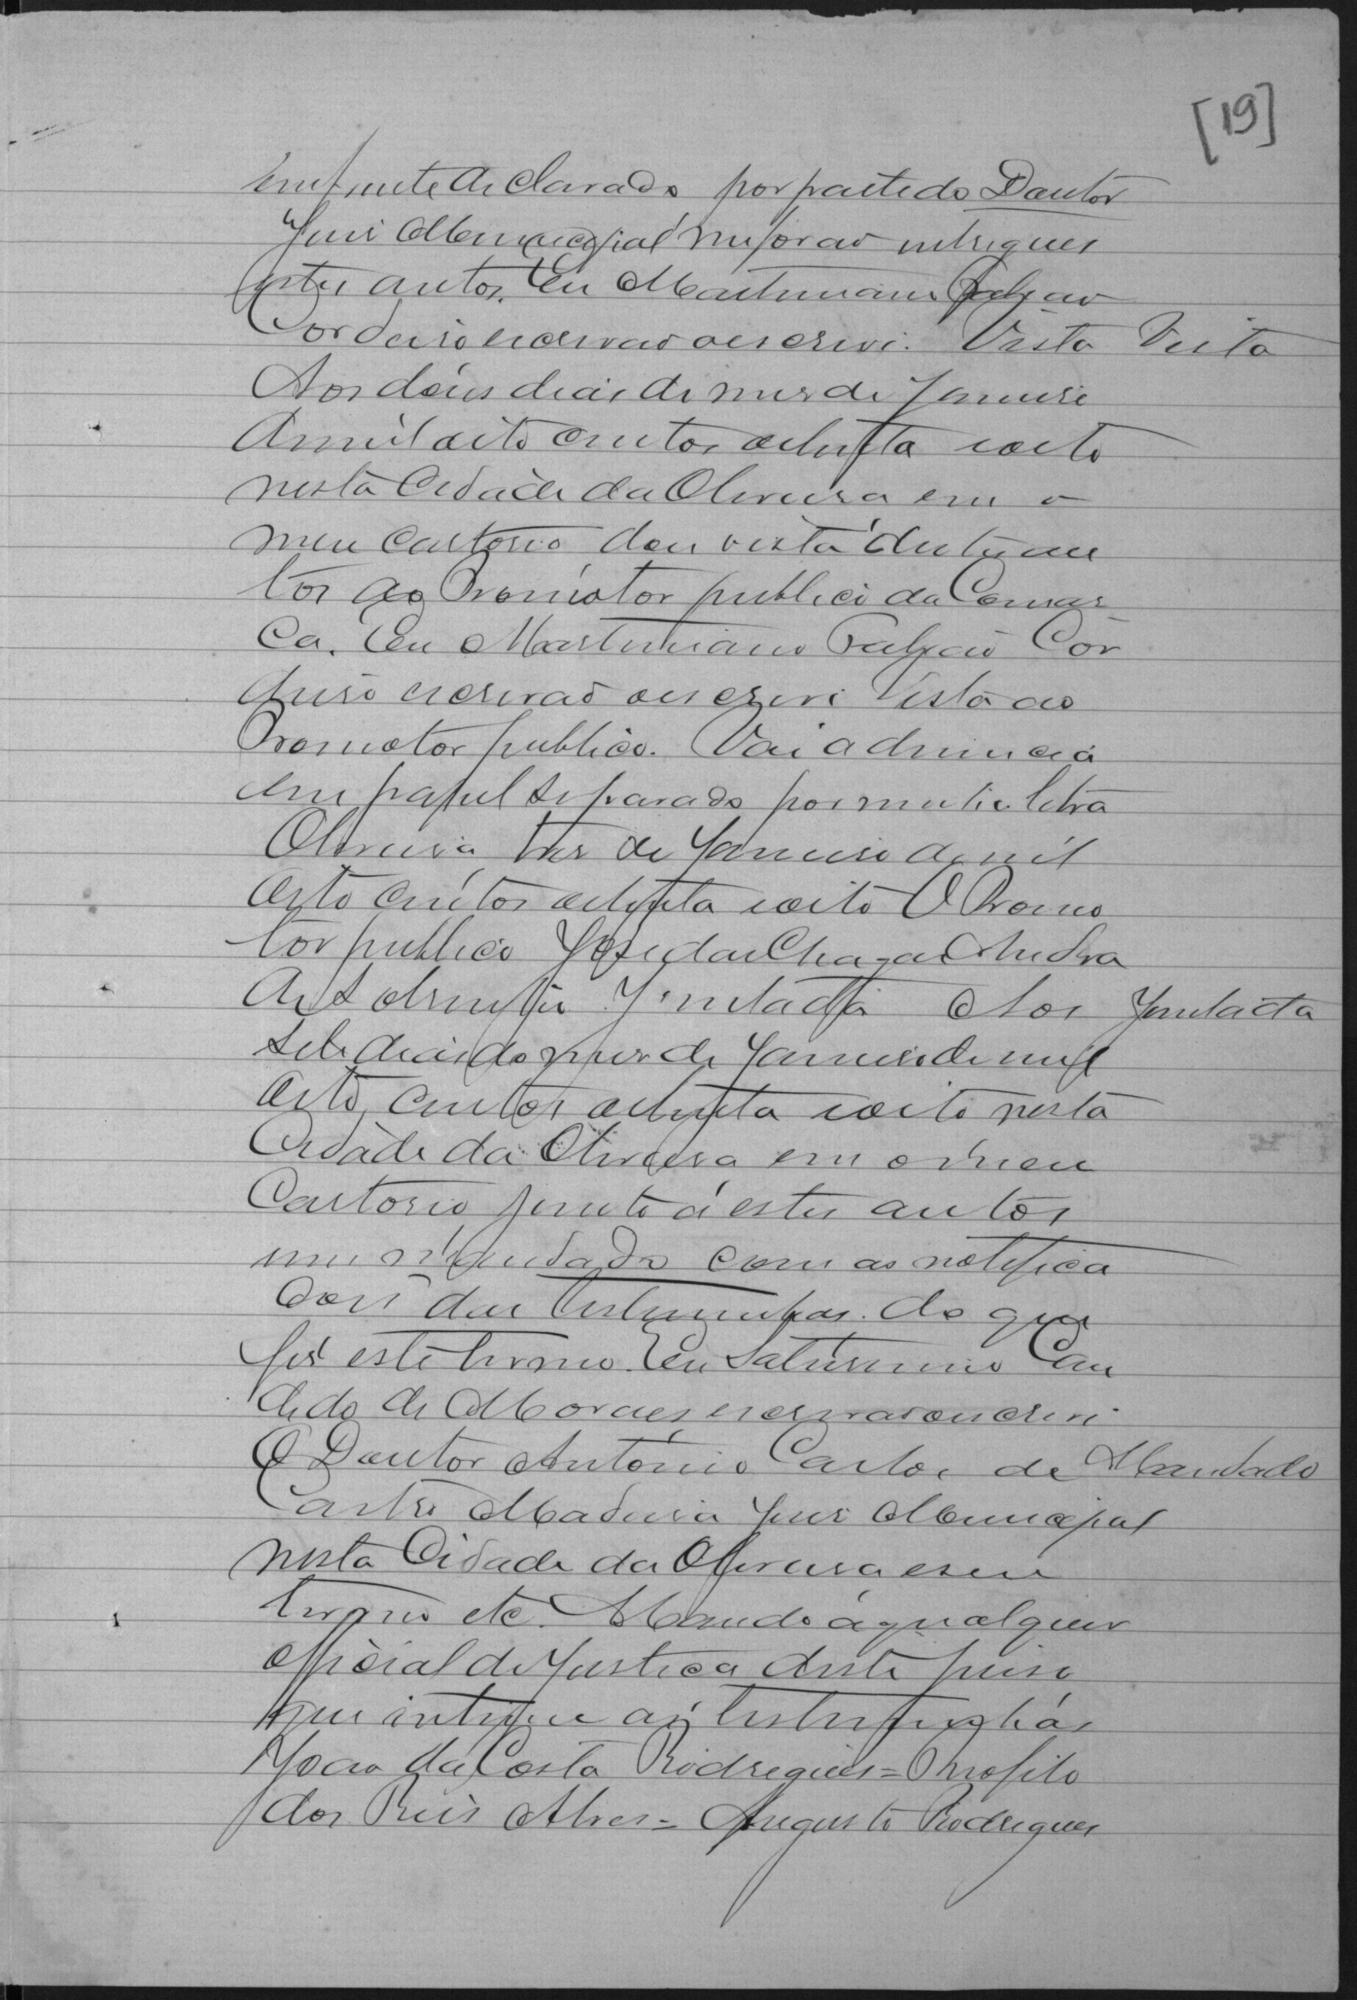 [19]
em frente declarado por parte do Doutor
Juis Municipal me forão entregues
estes autos. Eu Martimiano Galvão
Cordeiro escrivão o escrevi. Vista Vista
Aos dois dias do mes de Janeiro
de mil oito centos oitenta e oito
nesta Cidade da Oliveira em o
meu cartorio dou vista destes au
tos ao Promotor publico da Comar
ca. Eu Martimiano Galvão Cor
deiro escrivão o escrevi Vista ao
Promotor publico. Vai a denuncia
em papel separado por minha letra
Oliveira tres de Janeiro de mil
oito centos oitenta e oito O Promo
tor publico José das Chagas Andra
de Juntada Aos Juntada
sete dias do mes de Janeiro de mil
oito centos oitenta e oito nesta
Cidade da Oliveira em o meu
Cartorio junto á estes autos
um mandado com as notifica
ções das testemunhas. do que
fis este termo. Eu Saturnino Can
dido de Moraes escrivão o escrevi
O Doutor Antônio Carlos de Mandado
Castro Madeira Juis Municipal
nesta Cidade da Oliveira e seu
termo etc. Mando á qualquer
official de Justiça deste juiso
que intime as testemunhas
João da Costa Rodrigues = Profilo
dos Reis Alves = Augusto Rodrigues